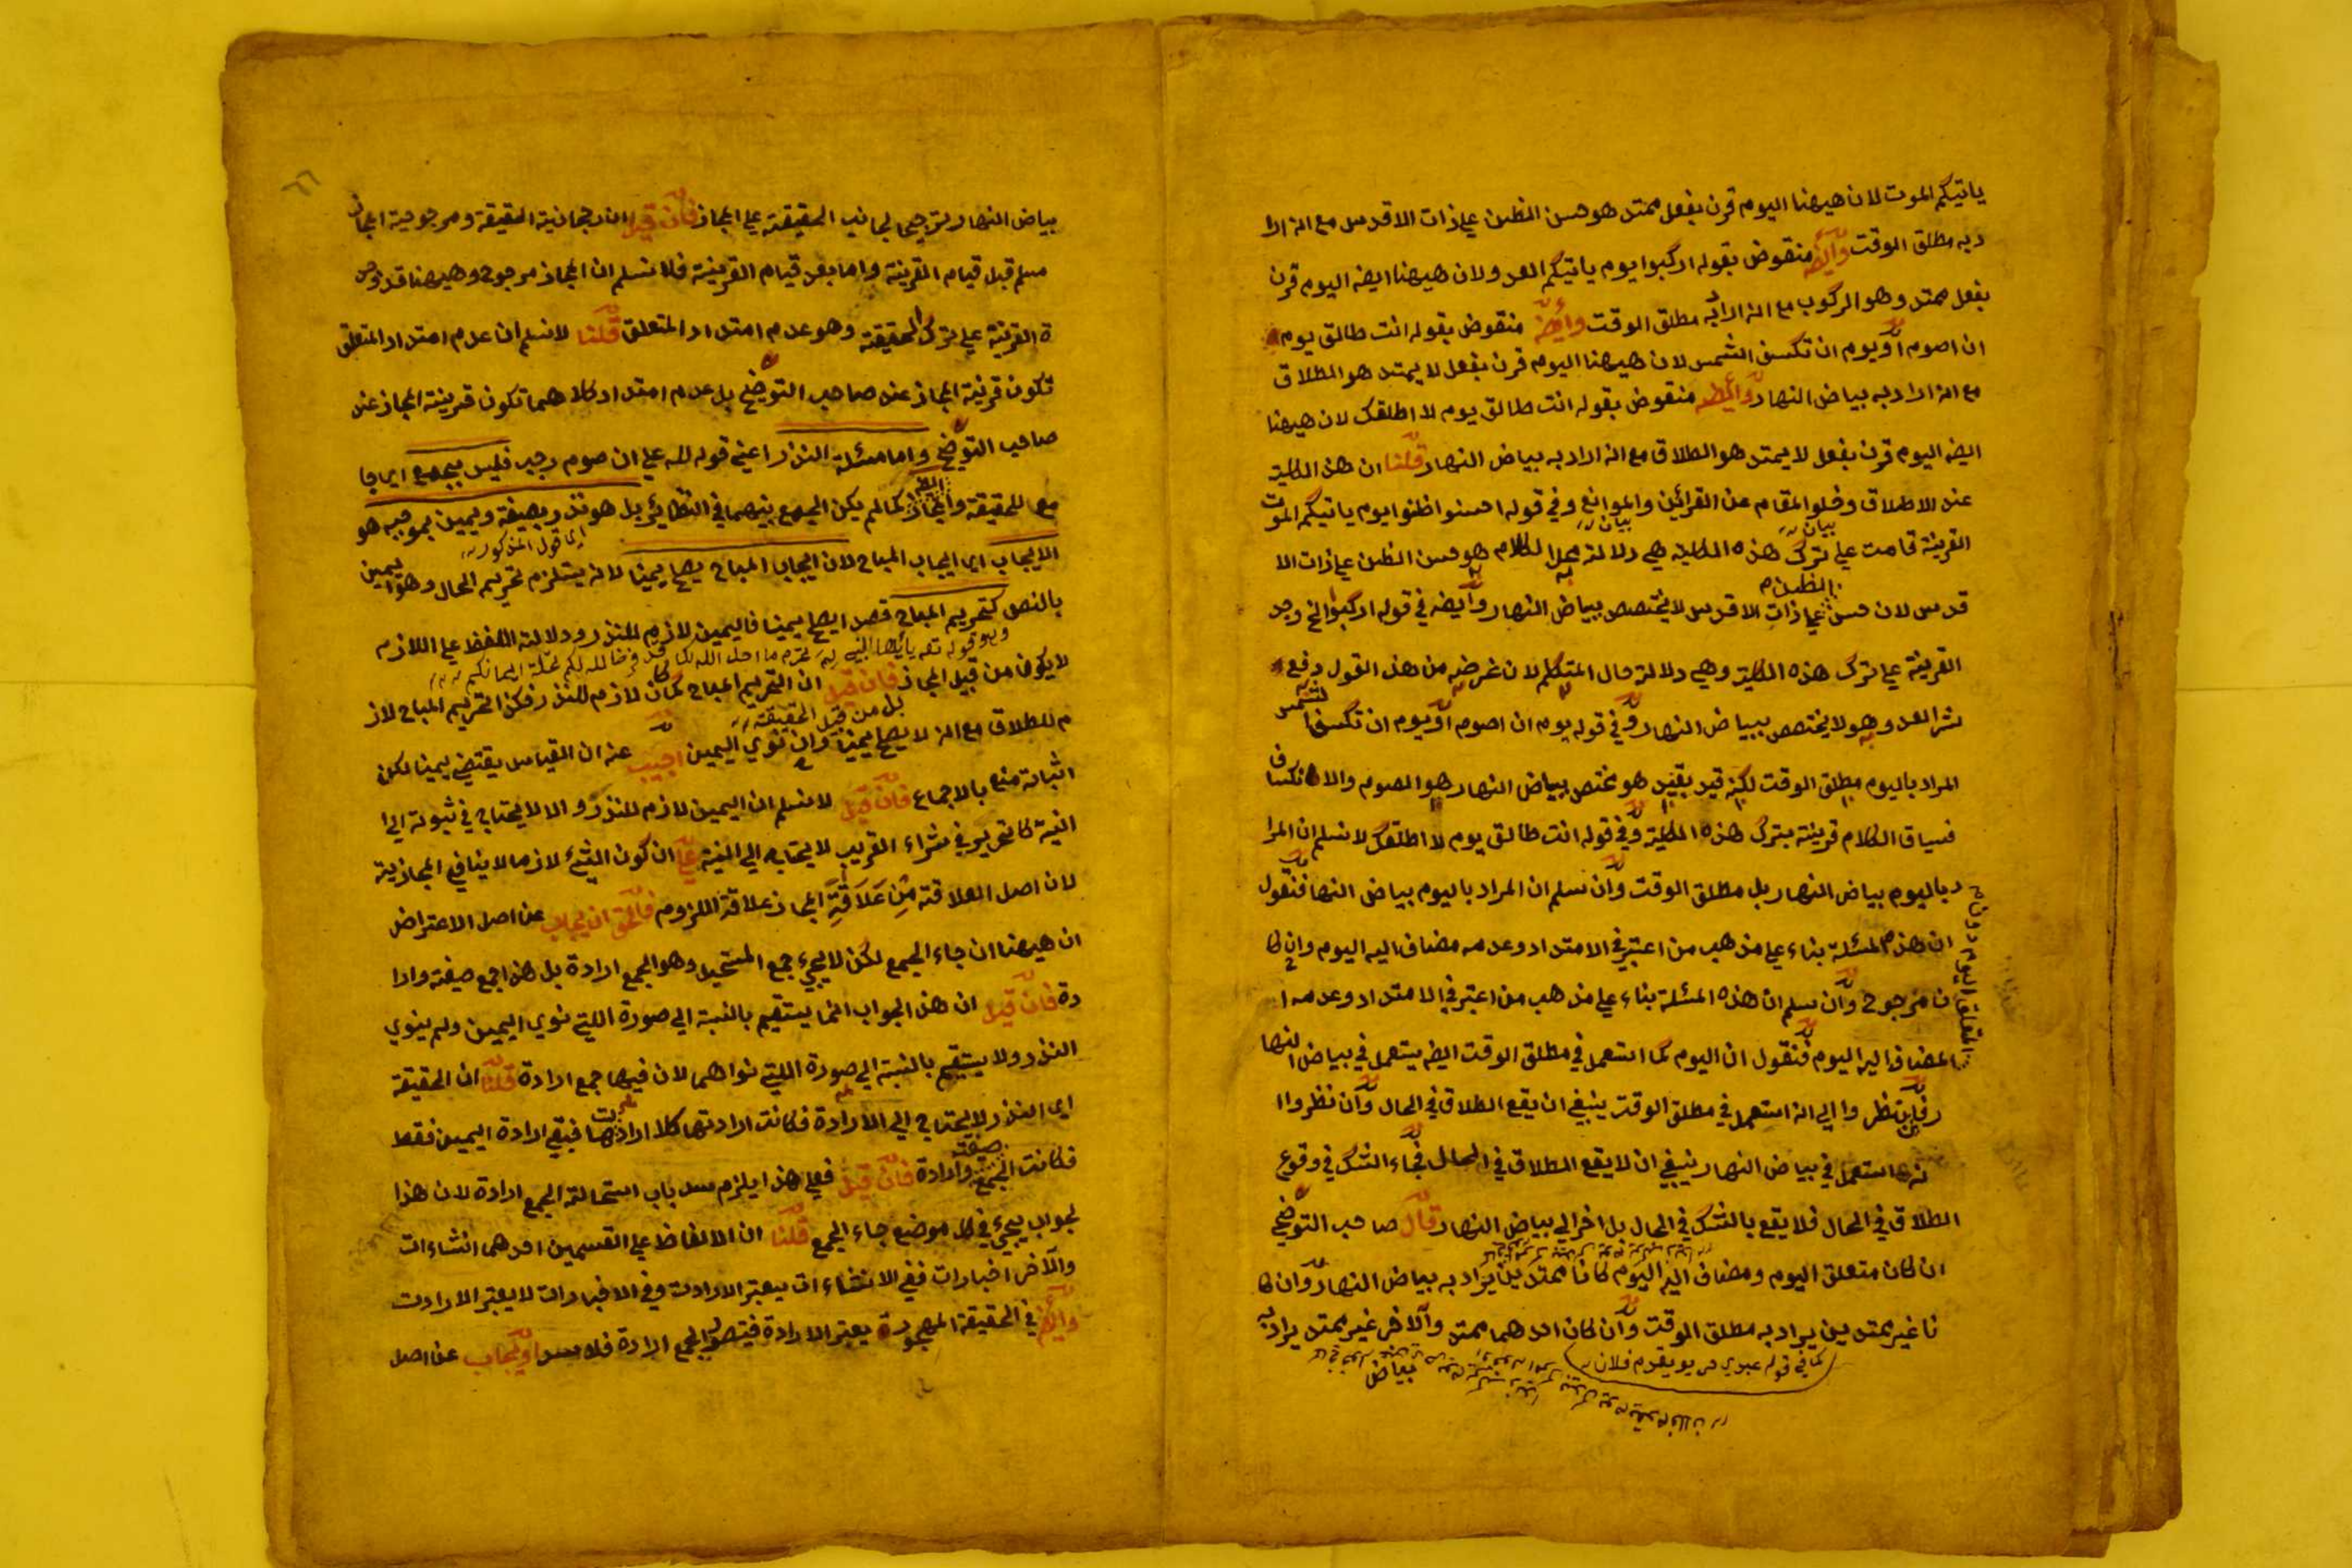 ياتيكم الموت لان هيهنا اليوم قرن بفعل ممتد هو حسن الظن علي ذات الاقدس مع انه ارا
د به مطلق الوقت وايضه منقوض بقوله اركبوا يوم ياتيكم العدو لان هيهنا ايضه اليوم قرن
بفعل ممتد وهو الركوب مع انه اراد به مطلق الوقت وايضه منقوض بقوله انت طالق يوم
ان اصوم او يوم ان تكسف الشمس لان هيهنا اليوم قرن بفعل لا يمتد هو الطلاق
مع انه اراد به بياض النهار وايضه منقوض بقوله انت طالق يوم لا اطلقك لان هيهنا
ايضه اليوم قرن بفعل لا يمتد هو الطلاق مع انه اراد به بياض النهار قلنا ان هذه الكلية
عند الاطلاق وخلو المقام عن القرائن والموانع وفي قوله احسنوا ظنوا يوم ياتيكم الموت
القرينة قامت علي ترك هذه الكلية هي دلالة محل الكلام هو حسن الظن علي ذات الا
قدس لان حسن الظن علي ذات الاقدس لا يختصص ببياض النهار وايضه في قوله اركبوا الخ وجد
القرينة علي ترك هذه الكلية وهي دلالة حال المتكلم لان غرضه من هذا القول دفع
شر العدو وهو لا يختصص ببياض النهار وفي قوله يوم ان اصوم او يوم ان تكسف الشمس
المراد باليوم مطلق الوقت لكنه قيد بقيد هو مختص ببياض النهار هو الصوم والانكساف
فسياق الكلام قرينة بترك هذه الكلية وفي قوله انت طالق يوم لا اطلقك لا نسلم ان المرا
د باليوم بياض النهار بل مطلق الوقت وان نسلم ان المراد باليوم بياض النهار فنقول
ان هذه المسئلة بناء علي مذهب من اعتبر في الامتداد وعدمه مضاف اليه اليوم وان كا
ن مرجوح وان نسلم ان هذه المسئلة بناء علي مذهب من اعتبر في الامتداد وعدمه ا
لمضاف اليه اليوم فنقول ان اليوم كما استعمل في مطلق الوقت ايضه يستعمل في بياض النها
ر فان نظروا الي انه استعمل في مطلق الوقت ينبغي ان يقع الطلاق في الحال وان نظروا ا
نه استعمل في بياض النهار ينبغي ان لا يقع الطلاق في الحال فجاء الشك في وقوع
الطلاق في الحال فلا يقع بالشك في الحال بل اخر الي بياض النهار قال صاحب التوضيح
ان كان متعلق اليوم ومضاف اليه اليوم كانا ممتدين يراد به بياض النهار وان كا
نا غير ممتدين يراد به مطلق الوقت وان كان احدهما ممتد والآخر غير ممتد يراد به
كما في قوله عبدي حر يوم يقدم فلان
بياض
بياض النهار ترجيحا لجانب الحقيقة علي المجاز فان قيل ان رجحانية الحقيقة ومرجوحية المجاز
مسلم قبل قيام القرينة واما بعد قيام القرينة فلا نسلم ان المجاز مرجوح وهيهنا قد وجد
ة القرينة علي ترك الحقيقة وهو عدم امتداد المتعلق قلنا لا نسلم ان عدم امتداد المتعلق
تكون قرينة المجاز عند صاحب التوضيح بل عدم امتداد كلاهما تكون قرينة المجاز عند
صاحب التوضيح واما مسئلة النذر اعني قوله لله علي ان صوم رجب فليس بجمع اي جا
مع للحقيقة والمجاز كما لم يكن الجمع بينهما في النظائر بل هو نذر بصيغة ويمين بموجبه هو
اي قول المذكور
الايجاب اي ايجاب المباح لان ايجاب المباح يصلح يمينا لانه يستلزم تحريم الحال وهو يمين
بالنص كتحريم المباح قصدا يصلح يمينا فاليمين لازم للنذر ودلالة اللفظ علي اللازم
وهو قوله تعه يا ايها النبي لم تحرم ما احل الله لك قد فرض الله لكم تحلة ايمانكم
لا يكون من قبيل المجاز فان قيل ان التحريم المباح كما كان لازم للنذر فكذا تحريم المباح لاز
بل من قبيل الحقيقة
م للطلاق مع انه لا يصلح يمينا وان نوي اليمين اجيب عنه ان القياس يقتضي يمينا لكن
اثباته منع بالاجماع فان قيل لا نسلم ان اليمين لازم للنذر والا لا يحتاج في ثبوته الي ا
لنية كالتحرير في شراء القريب لا يحتاج الي النية علي ان كون الشيء لازما لا ينافي المجازية
لان اصل العلاقة من علاقة المجاز علاقة اللزوم فالحق ان يجاب عن اصل الاعتراض
ان هيهنا ان جاء الجمع لكن لا يجيء جمع المستحيل وهو الجمع ارادة بل هذا جمع صيغة وارا
دة فان قيل ان هذا الجواب انما يستقيم بالنسبة الي صورة اللتي نوي اليمين ولم ينوي
النذر ولا يستقيم بالنسبة الي صورة اللتي نواهما لان فيها جمع ارادة قلنا ان الحقيقة
اي النذر لا يحتاج الي الارادة فكانت ارادتها كلا ارادتها فبقي ارادة اليمين فقط
فكانت الجمع صيغة وارادة فان قيل فعلي هذا يلزم سد باب استحالة الجمع ارادة لان هذا
لجواب يجيء في كل موضع جاء الجمع قلنا ان الالفاظ علي القسمين احدهما انشاءات
والآخر اخبارات ففي الانشاءات يعتبر الارادت وفي الاخبارات لا يعتبر الارادت
وايضه في الحقيقة المهجورة يعتبر الارادة فيتصور الجمع الارادة فلا سد او يجاب عن اصل